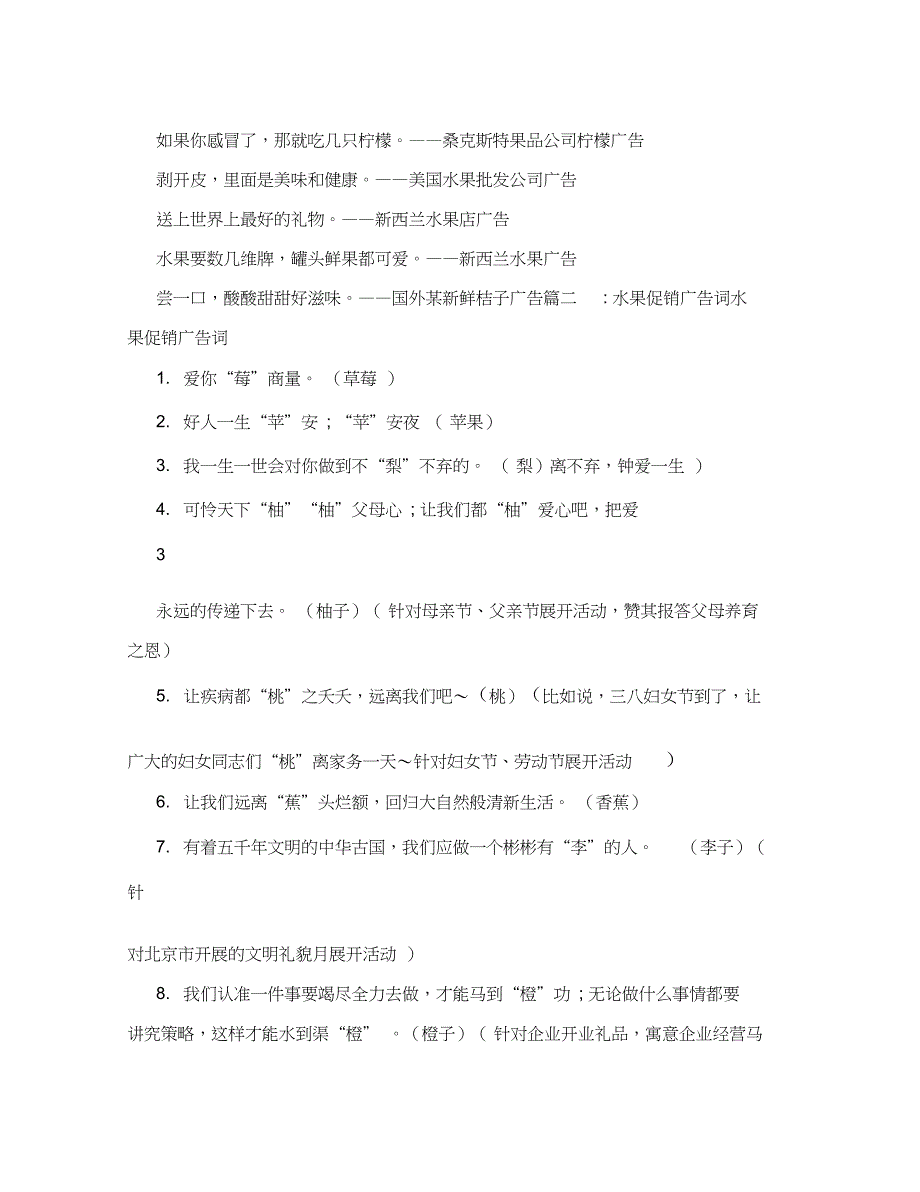 如果你感冒了，那就吃几只柠檬。——桑克斯特果品公司柠檬广告
剥开皮，里面是美味和健康。——美国水果批发公司广告
送上世界上最好的礼物。——新西兰水果店广告
水果要数几维牌，罐头鲜果都可爱。——新西兰水果广告
尝一口，酸酸甜甜好滋味。——国外某新鲜桔子广告篇二 :水果促销广告词水
果促销广告词
1. 爱你“莓”商量。（草莓 ）
2. 好人一生“苹”安 ;“苹”安夜 （ 苹果）
3. 我一生一世会对你做到不“梨”不弃的。（ 梨）离不弃，钟爱一生 ）
4. 可怜天下“柚”“柚”父母心 ;让我们都“柚”爱心吧，把爱
3
永远的传递下去。（柚子）（ 针对母亲节、父亲节展开活动，赞其报答父母养育
之恩）
5. 让疾病都“桃”之夭夭，远离我们吧～（桃）（比如说，三八妇女节到了，让
广大的妇女同志们“桃”离家务一天～针对妇女节、劳动节展开活动 ）
6. 让我们远离“蕉”头烂额，回归大自然般清新生活。（香蕉）
7. 有着五千年文明的中华古国，我们应做一个彬彬有“李”的人。 （李子）（
针
对北京市开展的文明礼貌月展开活动 ）
8. 我们认准一件事要竭尽全力去做，才能马到“橙”功 ;无论做什么事情都要
讲究策略，这样才能水到渠“橙” 。（橙子）（ 针对企业开业礼品，寓意企业经营马